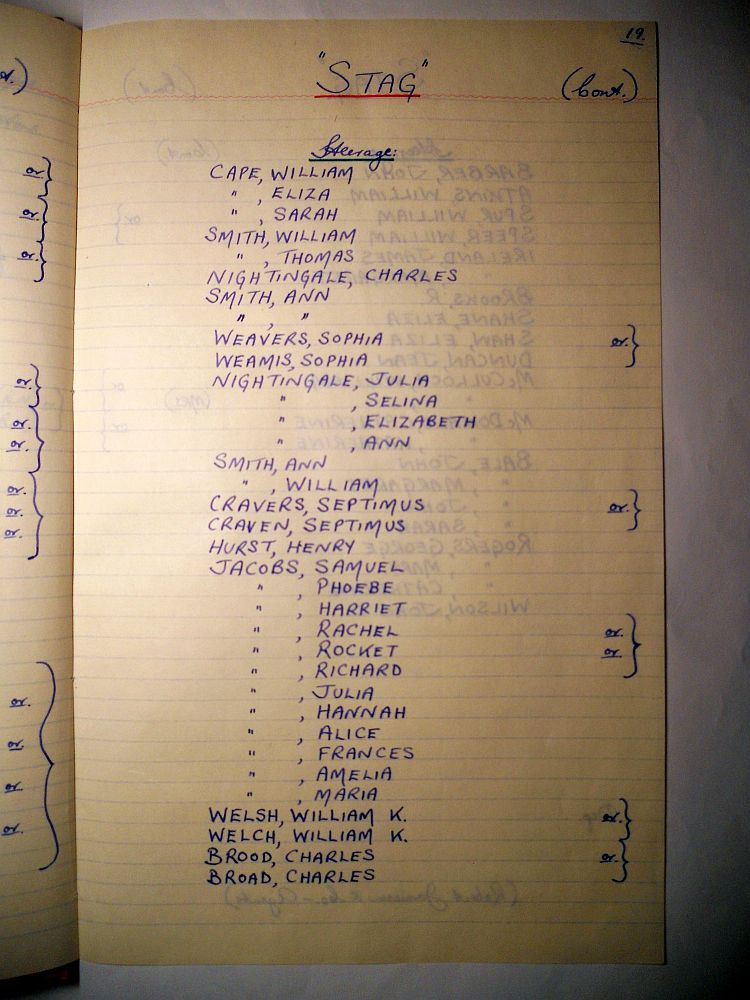 19.
"STAG" (Cont.)
Steerage:
CAPE, WILLIAM
" , ELIZA
" , SARAH
SMITH, WILLIAM
" , THOMAS
NIGHTINGALE, CHARLES
SMITH, ANN
" , "
WEAVERS, SOPHIA or.
WEAMIS, SOPHIA
NIGHTINGALE, JULIA
" , SELINA
" , ELIZABETH
" , ANN
SMITH, ANN
" , WILLIAM
CRAVERS, SEPTIMUS or.
CRAVEN, SEPTIMUS
HURST, HENRY
JACOBS, SAMUEL
" , PHOEBE
" , HARRIET
" , RACHEL or.
" , ROCKET or.
" , RICHARD
" , JULIA
" , HANNAH
" , ALICE
" , FRANCES
" , AMELIA
" , MARIA
WELSH, WILLIAM K. or.
WELCH, WILLIAM K.
BROOD, CHARLES or.
BROAD, CHARLES